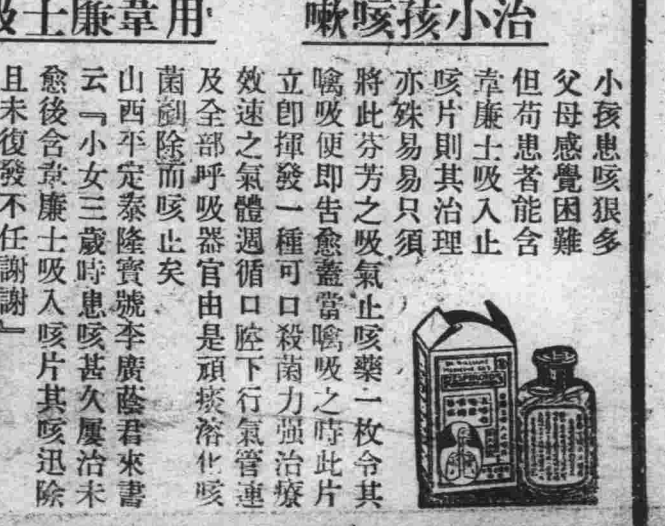 治小孩咳嗽
用韋廉士吸
小孩患咳狠多
父母感覺困難
但苟患者能含
韋廉士吸入止
咳片則其治理
亦殊易易只須
將此芬芳之吸氣止咳藥一枚令其
噙吸便即告愈蓋當噙吸之時此片
立卽揮發一種可口殺菌力强治療
效速之氣體週循口腔下行氣管連
及全部呼吸器官由是頑痰溶化咳
菌剷除而咳止矣
山西平定泰隆寶號李廣蔭君來書
云『小女三歲時患咳甚久屢治未
愈後含韋廉士吸入咳片其咳迅除
且未復發不任謝謝』
DR. WILLIAMS'